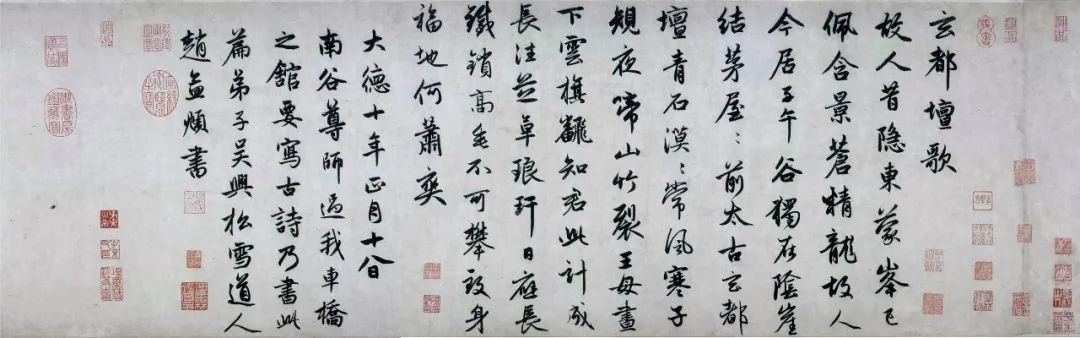 玄都壇歌
故人昔隐東蒙峯已
佩含景蒼精龍故人
今居子午谷獨在陰崖
結茅屋〻前太古玄都
壇青石漠〻常風寒子
規夜啼山竹裂王母晝
下雲旗翻知君此計成
長往芝草琅玕日應長
鐵鎖高垂不可攀致身
福地何蕭爽
大德十年正月十八日
南谷尊師過我車橋
之舘要寫古詩乃書此
篇弟子吳興松雪道人
趙孟頫書